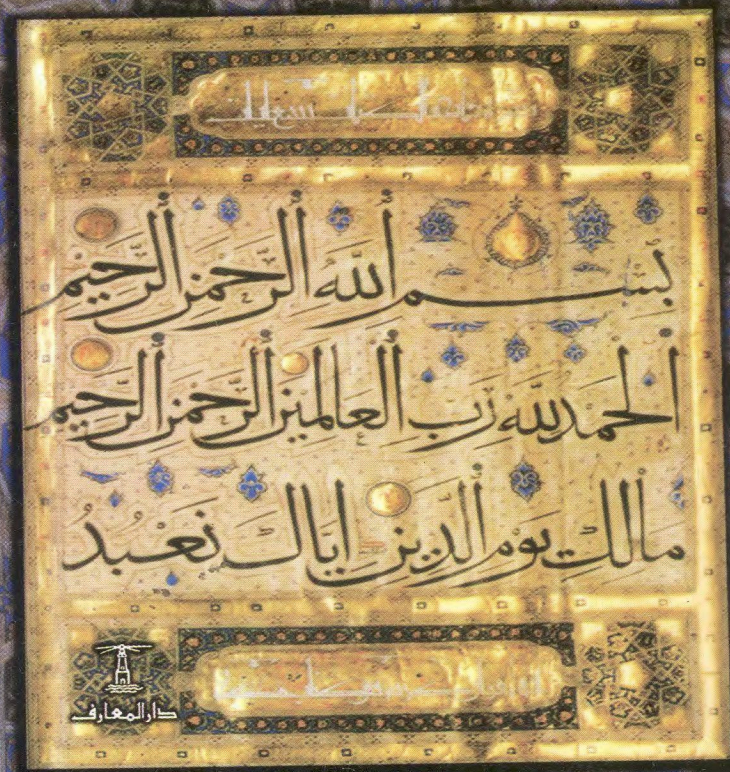 بسم ٱلله ٱلرحمن ٱلرحيم
ٱلحمد لله رب ٱلعالمين ٱلرحمن ٱلرحيم
مالك يوم ٱلدين اياك نعبد
دار المعارف